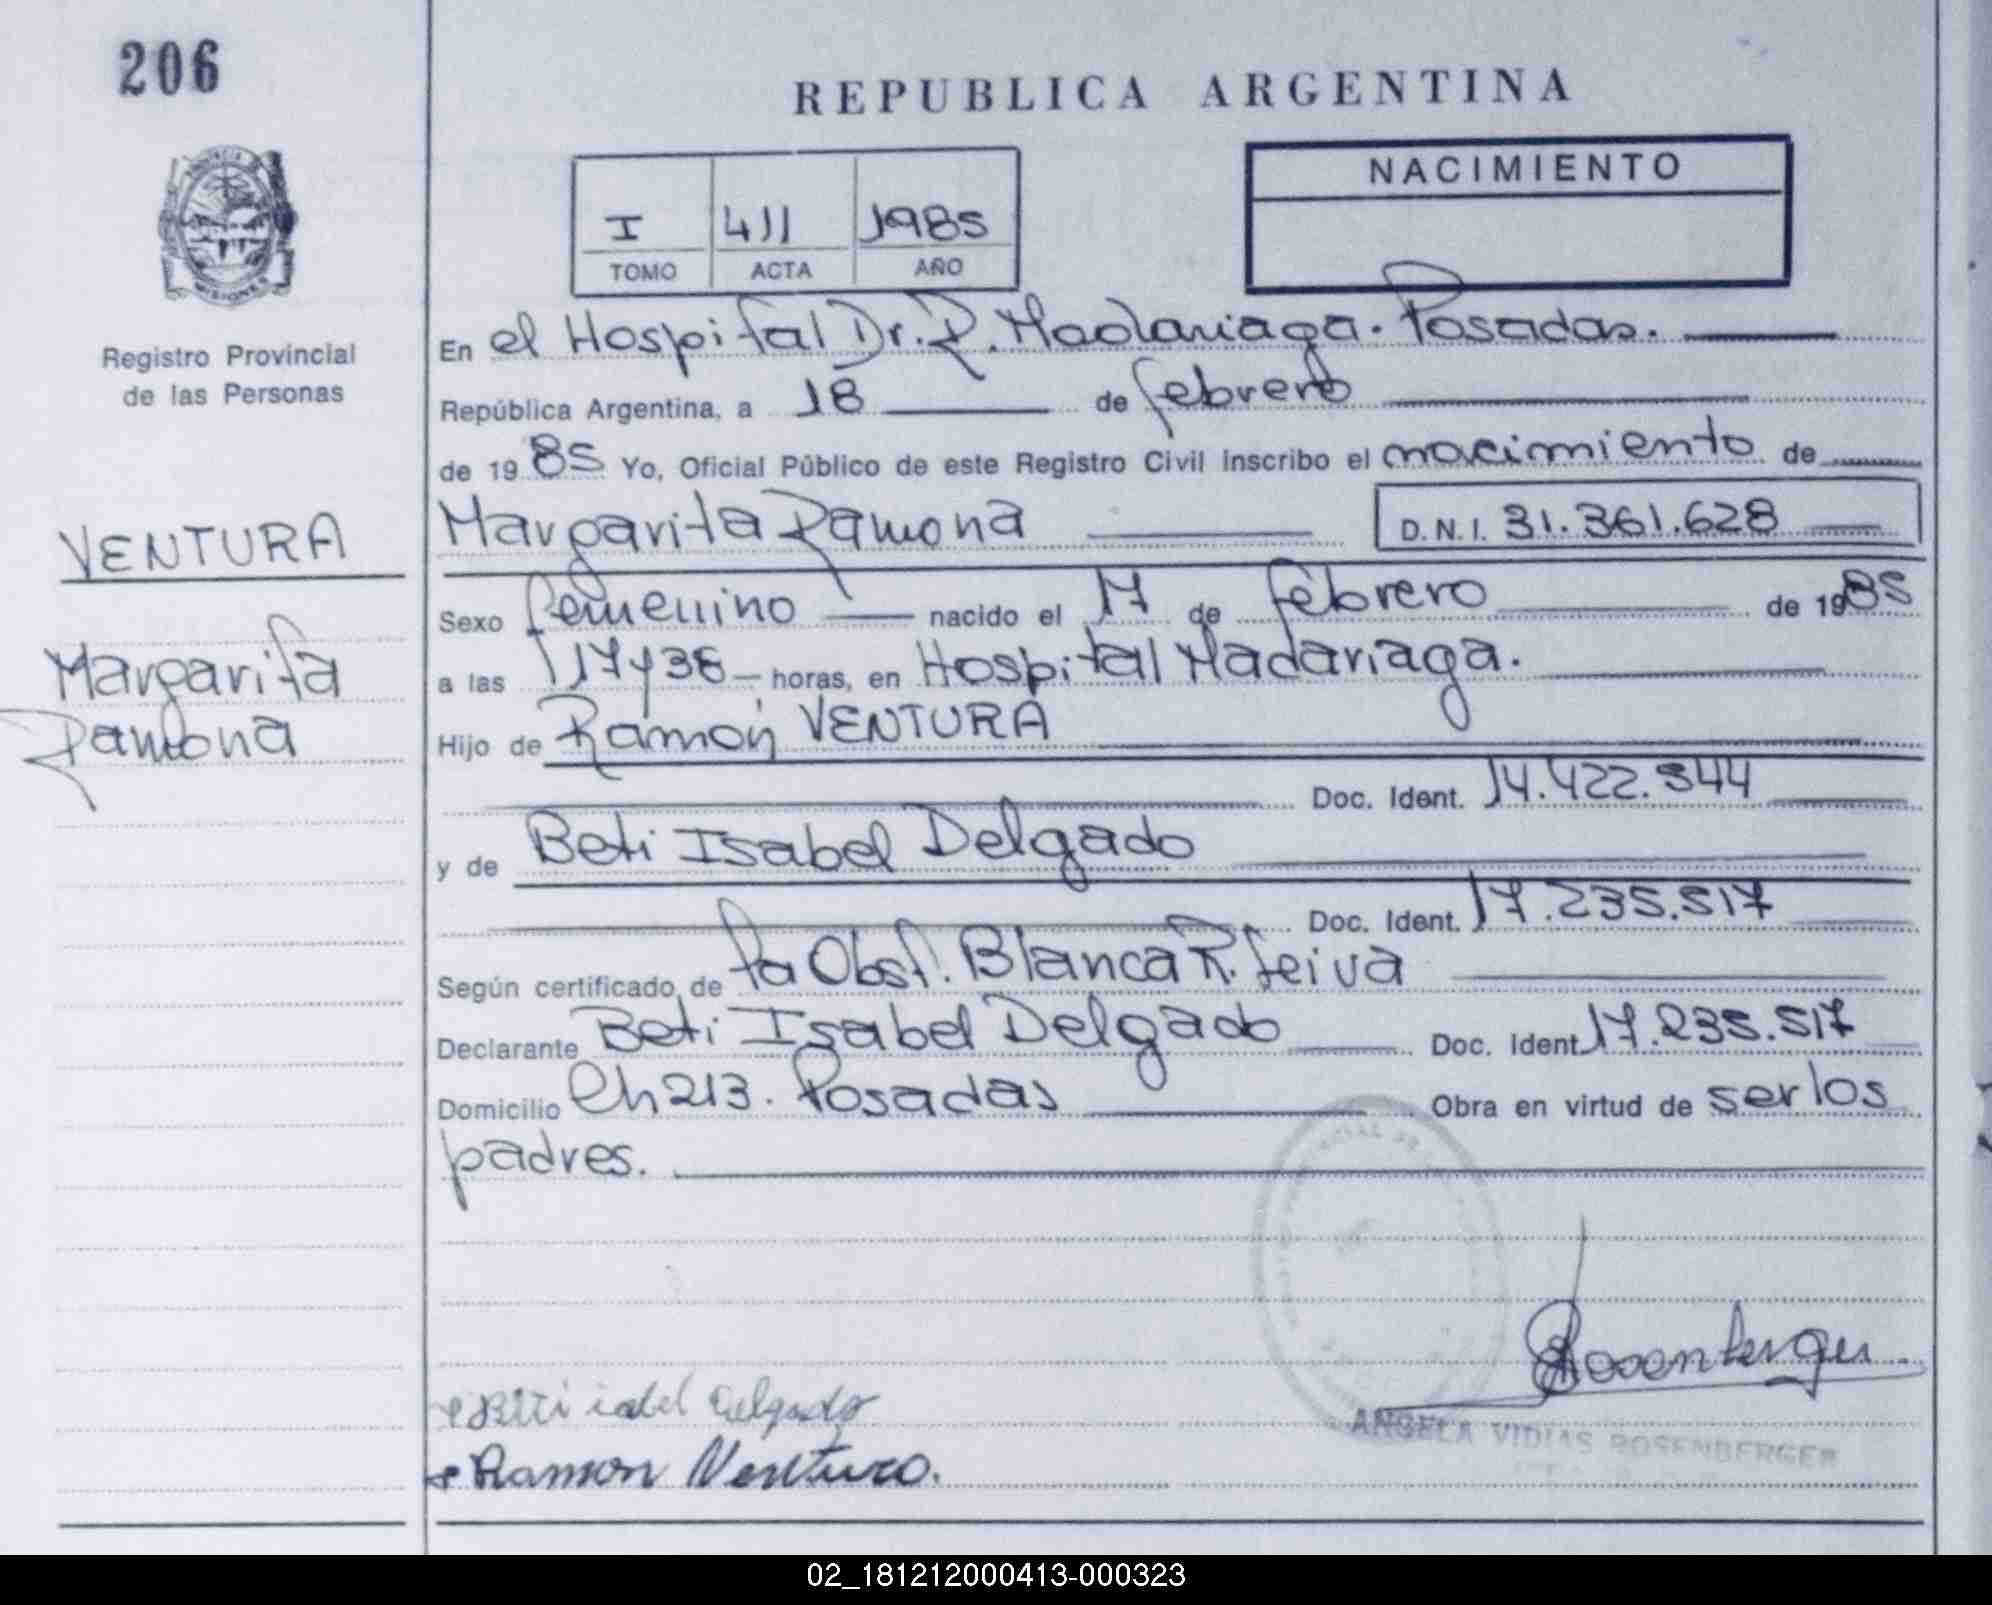 206
REPUBLICA ARGENTINA
NACIMIENTO
I 411 1985
TOMO ACTA AÑO
MISIONES
Registro Provincial
de las Personas
VENTURA
Margarita
Ramona
En el Hospital Dr. R. Madariaga. Posadas.
República Argentina, a 18 de febrero
de 1985 Yo, Oficial Público de este Registro Civil inscribo el nacimiento de
Margarita Ramona D.N.I. 31.361.628
Sexo femenino nacido el 17 de febrero de 1985
a las 17y38 horas, en Hospital Madariaga.
Hijo de Ramón VENTURA
Doc. Ident. 14.422.544
y de Beti Isabel Delgado
Doc. Ident. 17.235.517
Según certificado de la Obst. Blanca R. Leiva
Declarante Beti Isabel Delgado Doc. Ident 17.235.517
Domicilio Ch 213. Posadas Obra en virtud de ser los
padres.
Rosenberger
Beti isabel Delgado
ANGELA VIDIAS ROSENBERGER
Ramon Ventura.
02_181212000413-000323